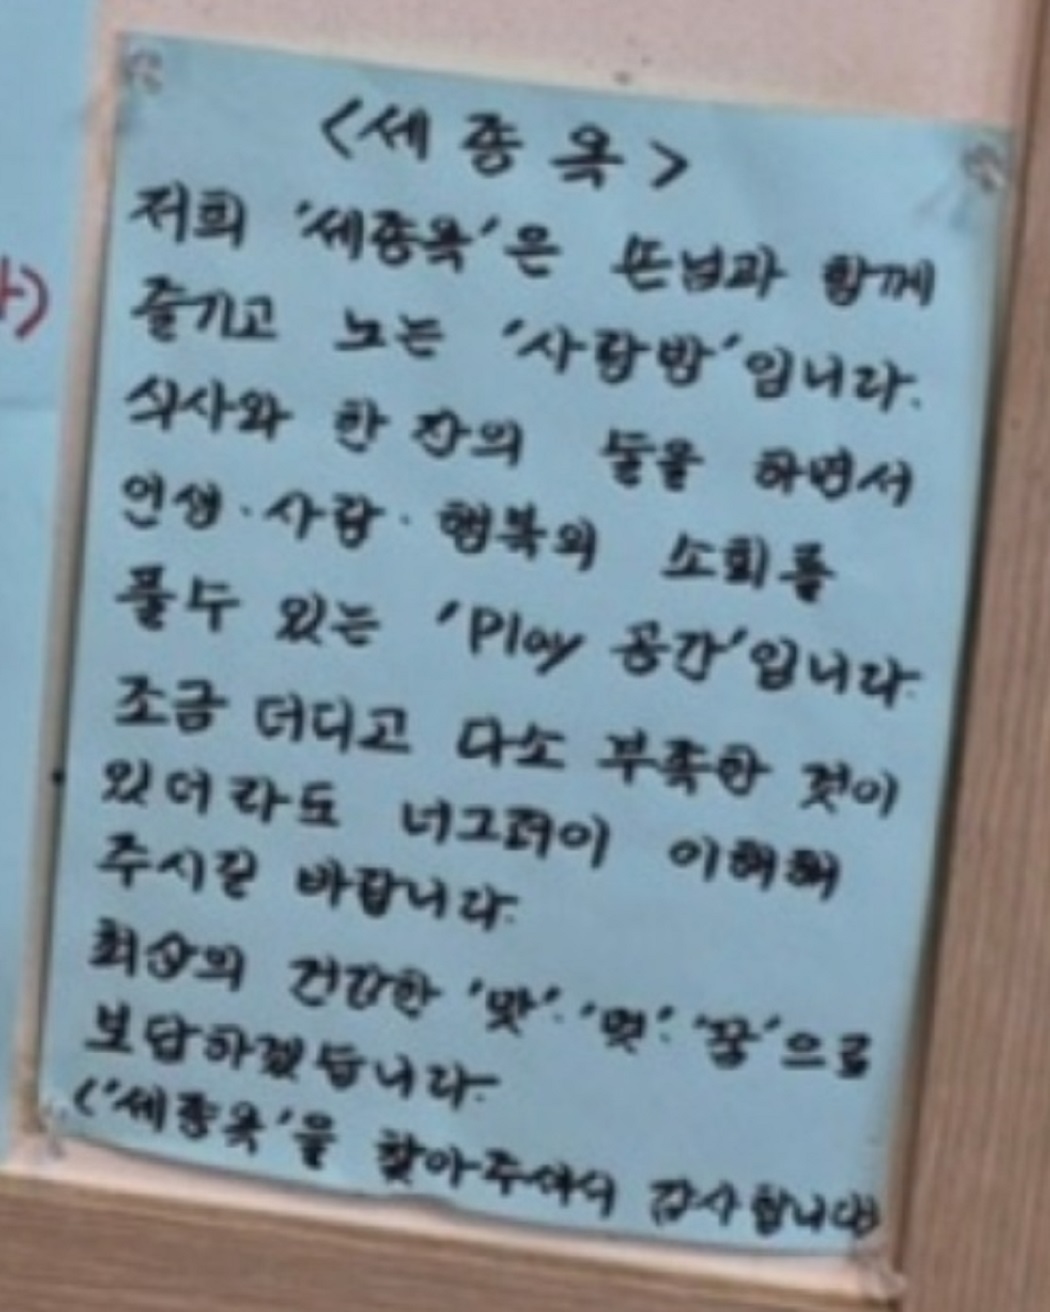 <세종옥>
저희 '세종옥'은 뜬님과 함께
즐기고 노는 '사랑방'입니다.
식사와 한 잔의 술을 하면서
인생·사랑·행복의 소회를
풀 수 있는 'Play 공간'입니다.
조금 더디고 다소 부족한 것이
있더라도 너그러이 이해해
주시길 바랍니다.
최상의 건강한 '맛'·'멋'·'꿈'으로
보답하겠습니다.
('세종옥'을 찾아주셔서 감사합니다)